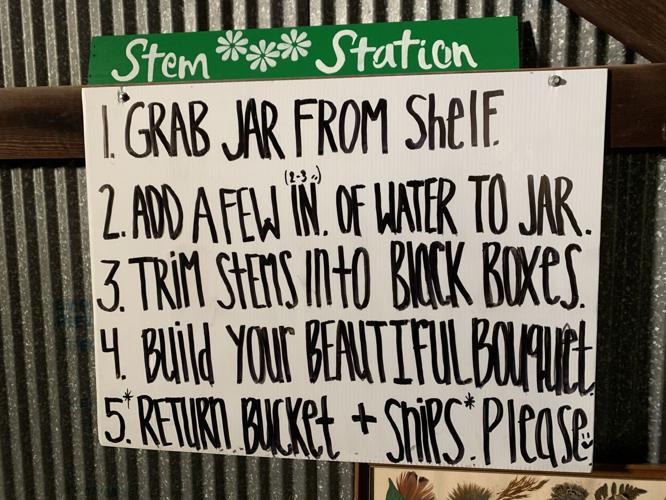 Stem Station
1. GRAB JAR FROM Shelf.
(2-3")
2. ADD A FEW IN. OF WATER TO JAR.
3. TRIM STEMS INTO BLACK BOXES.
4. Build YOUR BEAUTIFUL BOUQUET.
5.* RETURN BUCKET + SNIPS.* Please